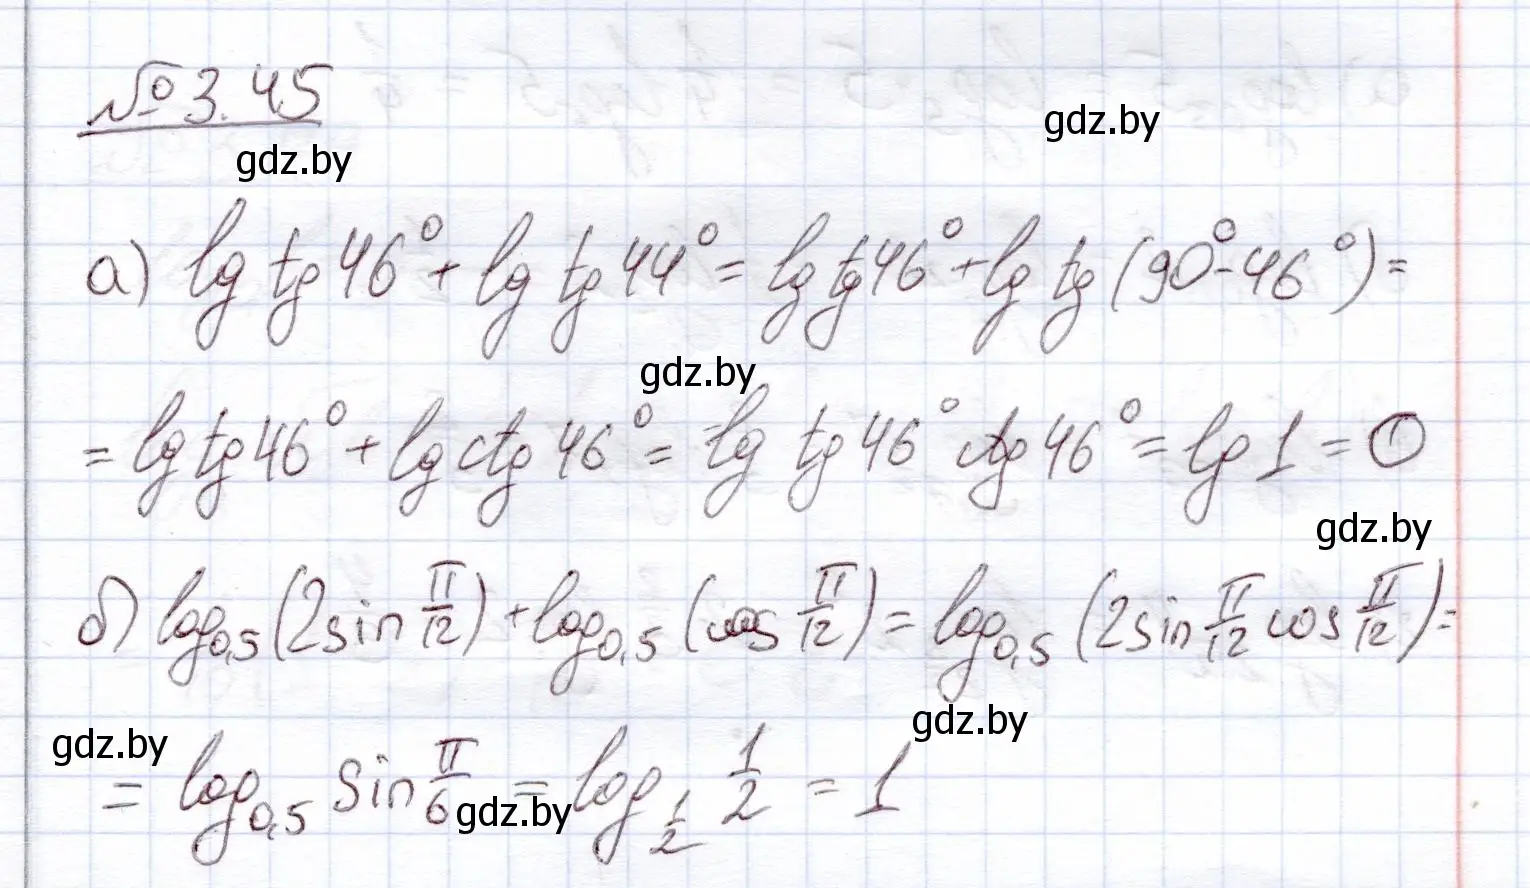 № 3.45
gdz.by
gdz.by
а) lg tg 46° + lg tg 44° = lg tg 46° + lg tg (90° - 46°) =
gdz.by
= lg tg 46° + lg ctg 46° = lg tg 46° ctg 46° = lg 1 = 0
gdz.by
б) log_{0,5} (2 sin π/12) + log_{0,5} (cos π/12) = log_{0,5} (2 sin π/12 cos π/12) =
gdz.by
gdz.by
= log_{0,5} sin π/6 = log_{1/2} 1/2 = 1
gdz.by